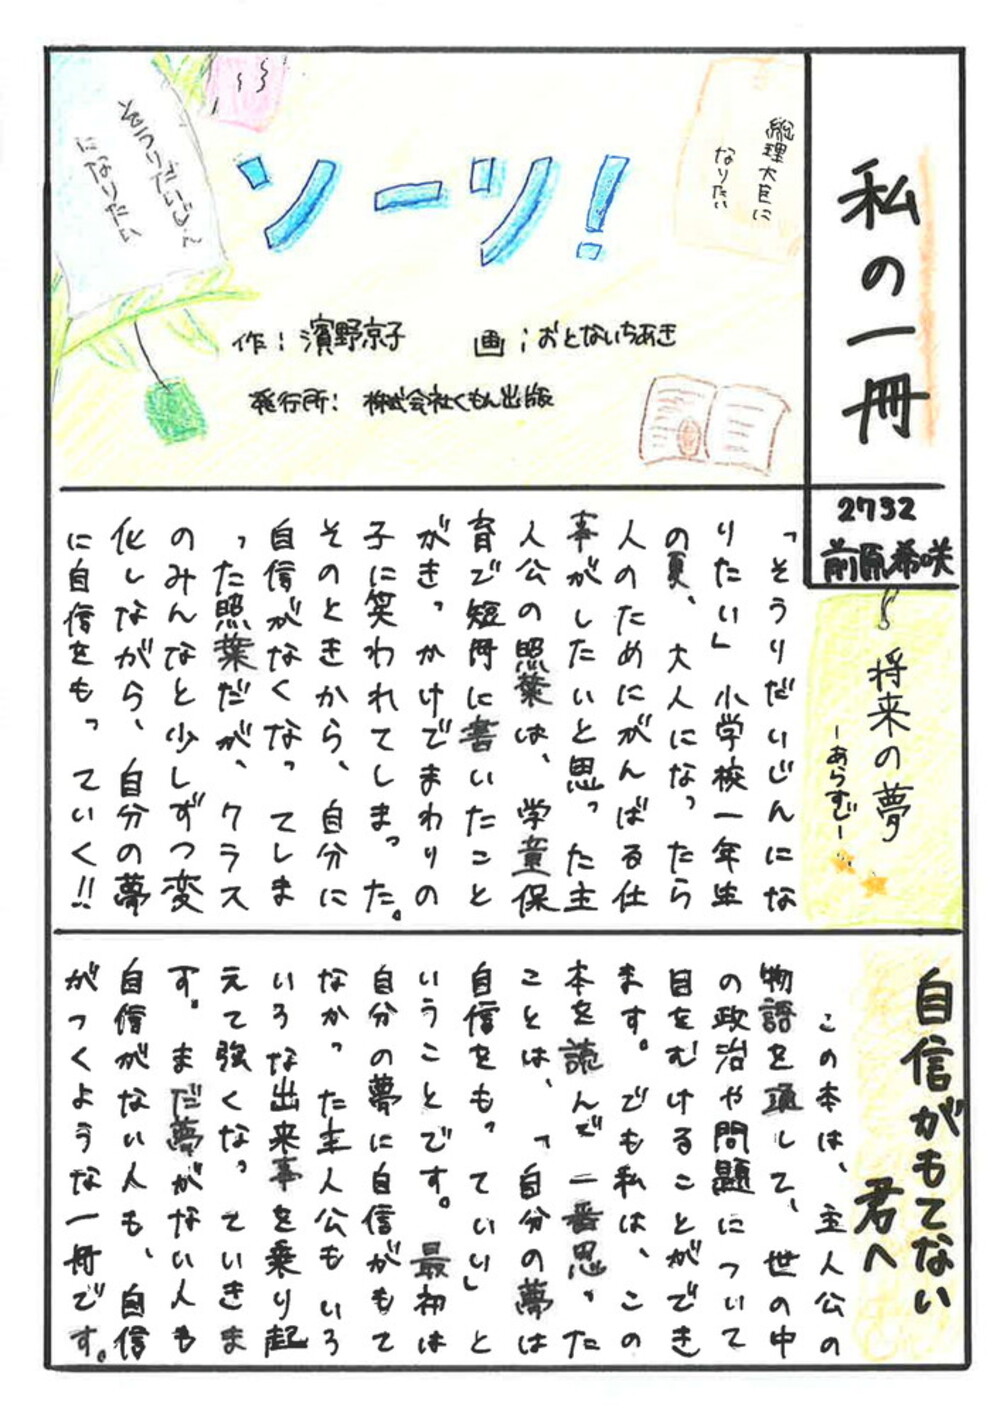 私の一冊
2732
前原希咲
そうりだいじん
になりたい
総理大臣に
なりたい
ソーリ!
作:濱野京子 画;おとないちあき
発行所:株式会社くもん出版
将来の夢
-あらすじ-
「そうりだいじんにな
りたい」小学校一年生
の夏、大人になったら
人のためにがんばる仕
事がしたいと思った主
人公の照葉は、学童保
育で短冊に書いたこと
がきっかけでまわりの
子に笑われてしまった。
そのときから、自分に
自信がなくなってしま
った照葉だが、クラス
のみんなと少しずつ変
化しながら、自分の夢
に自信をもっていく!!
自信がもてない
君へ
この本は、主人公の
物語を通して、世の中
の政治や問題について
目をむけることができ
ます。でも私は、この
本を読んで一番思った
ことは、「自分の夢は
自信をもっていい」と
いうことです。最初は
自分の夢に自信がもて
なかった主人公もいろ
いろな出来事を乗り起
えて強くなっていきま
す。まだ夢がない人も
自信がない人も、自信
がつくような一冊です。